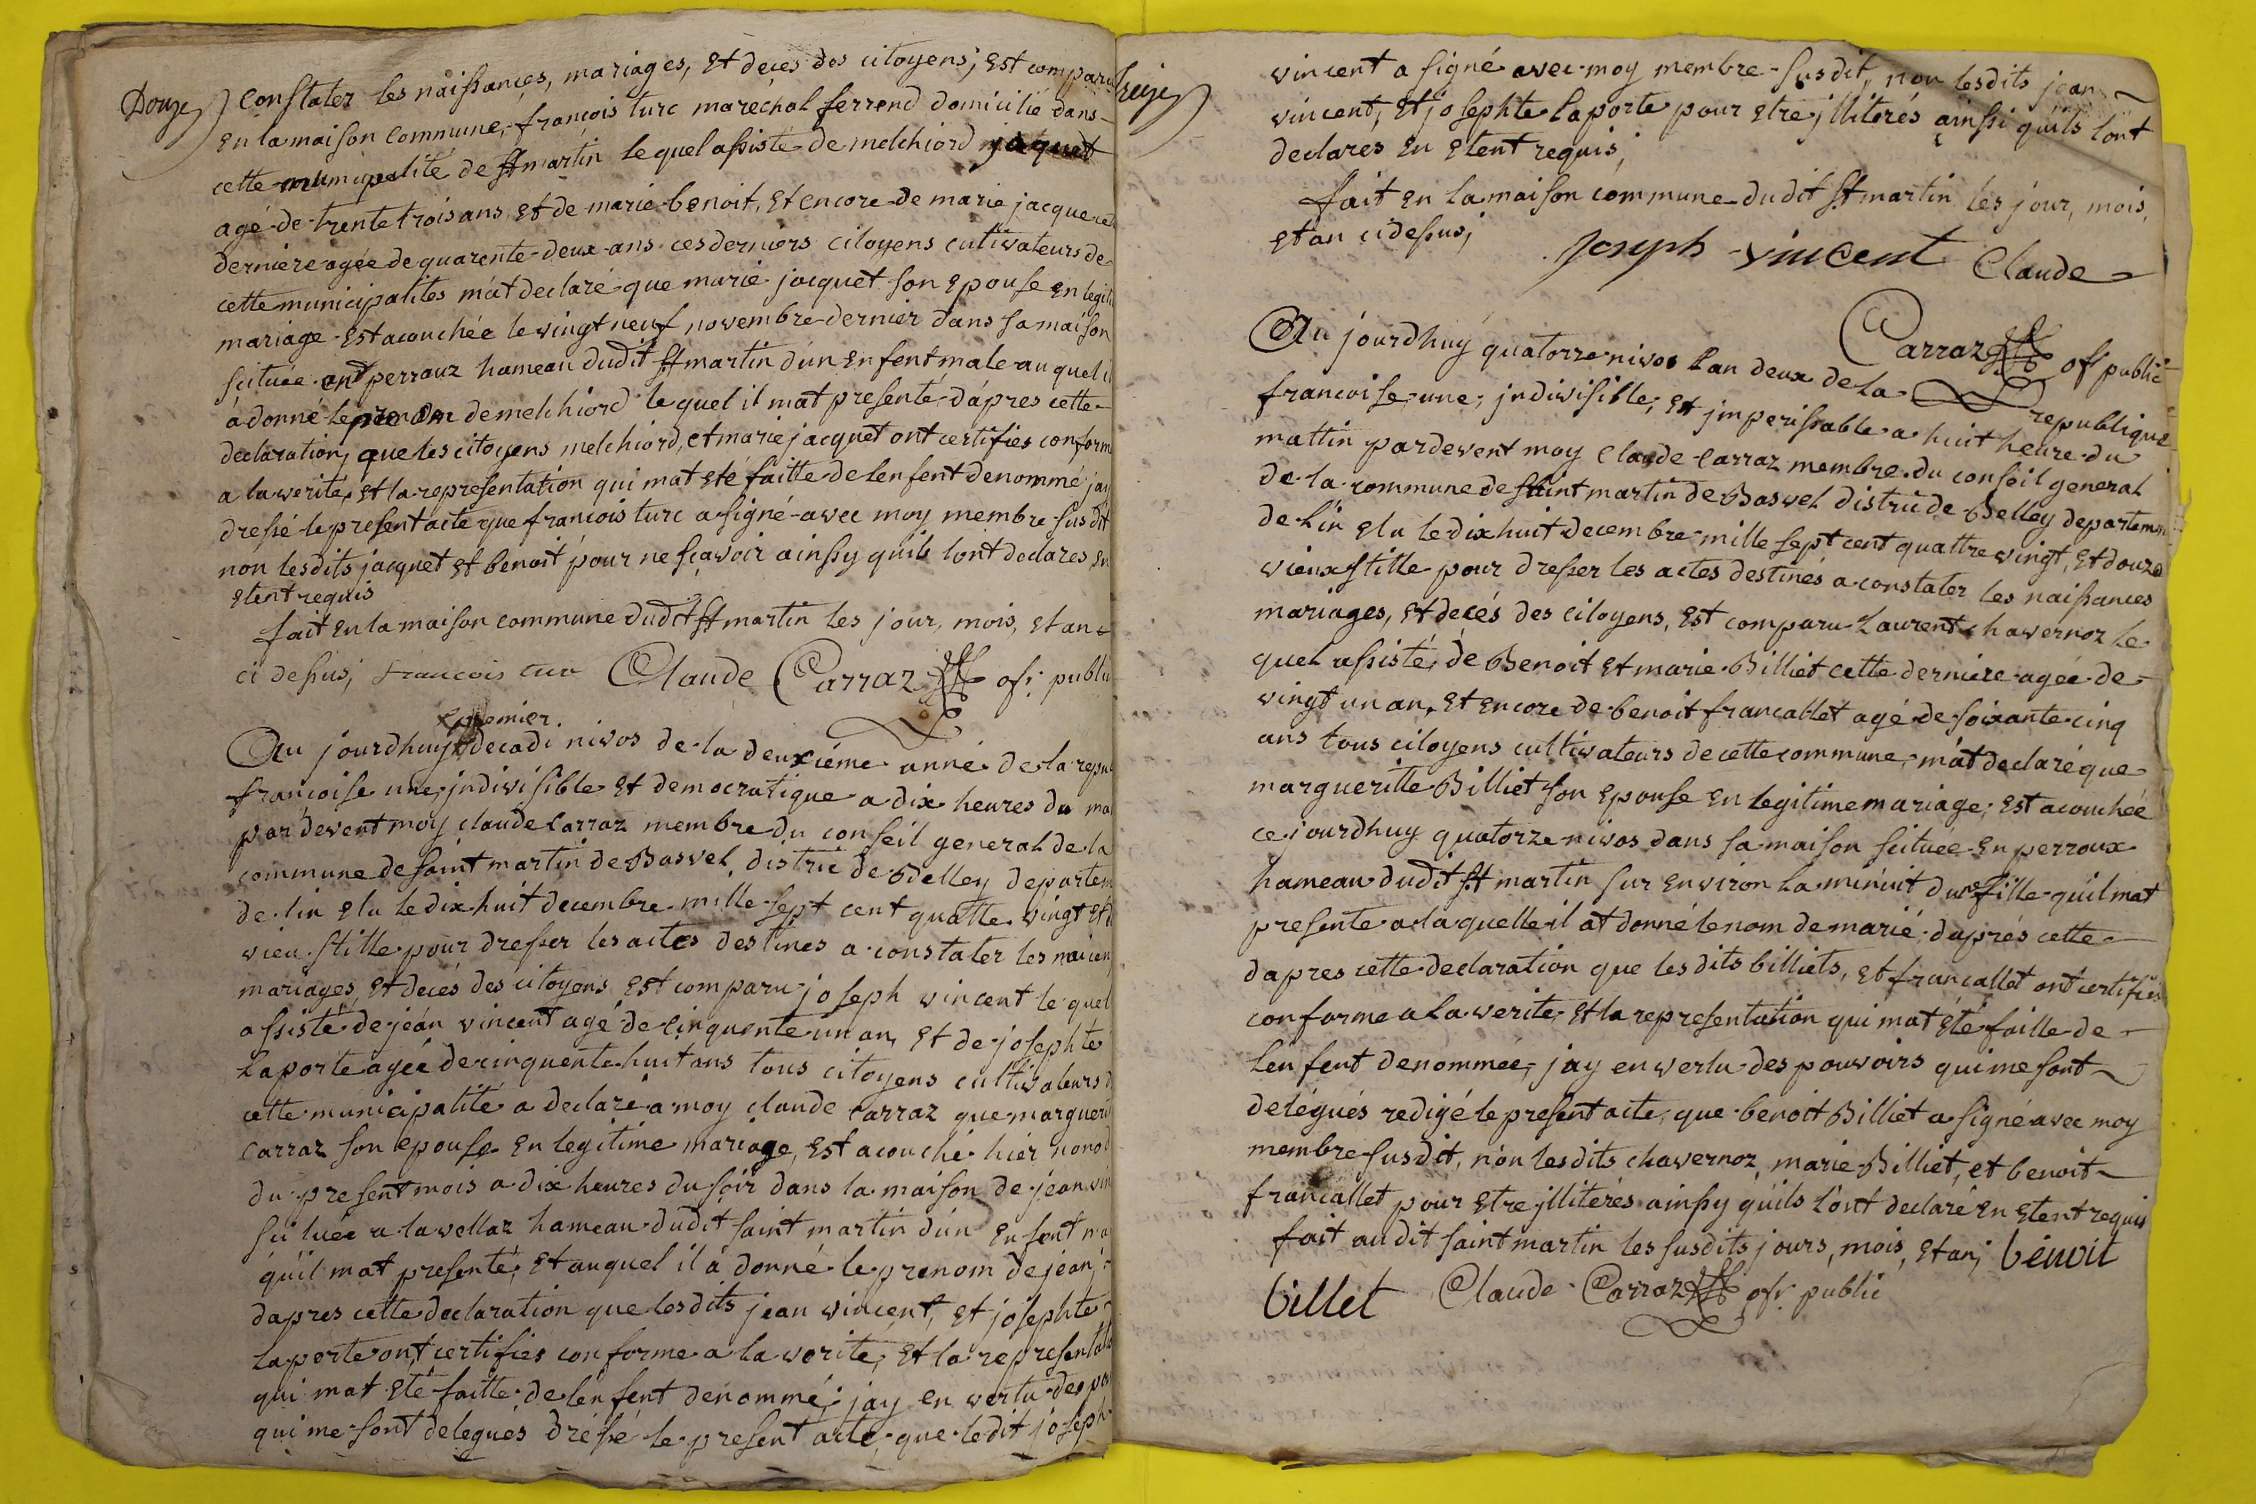 Douze
constater les naissances, mariages, et decés des citoyens; est comparu
en la maison commune, francois turc maréchal ferrend domicilié dans
cette municipalité de st martin le quel assisté de melchiord jaquet
agé de trente trois ans, et de marie benoit, et encore de marie jacquet
derniere agée de quarente deux ans ces derniers citoyens cultivateurs de
cette municipalites m'at declaré que marie jacquet son epouse en legit
mariage est acouchée le vingt neuf novembre dernier dans sa maison
scituée en perrouz hameau dudit st martin d'un enfent male au quel il
à donné le prenom de melchiord le quel il mat presenté, dápres cette
declaration, que les citoyens melchiord, et marie jacquet ont certifiés conform
a la verité, et la representation qui mat eté faitte de lenfent denommé jay
dressé le present acte que francois turc a signé avec moy membre susdit
non lesdits jacquet et benoit pour ne sçavoir ainssy quils lont declares en
etent requis
fait en la maison commune dudit st martin les jour, mois, et an
ci dessus; francois turc Claude Carraz ofi public
premier
Au jourdhuy decadi nivos de la deuxiéme anné de la repu
francoise une, jndivisible et democratique a dix heures du ma
par devent moy claude Carraz membre du conseil general de la
commune de saint martin de Bavel, distric de Belley departem
de lin elu le dix huit decembre mille sept cent quatte vingt et
vieu stille pour dresser les actes destines a constater les naicen
mariages, et decés des citoyens est comparu joseph vincent le quel
assisté de jeán vincent agé de cinquente un an, et de josephte
Laporte agée de cinquente huit ans tous citoyens cultivateurs d
cette municipalité a declaré a moy claude carraz que marguerit
Carraz son epouse en legitime mariage, est acouché hiér nonod
du present mois a dix heures du soir dans la maison de jean vin
scituée a lavellaz hameau dudit saint martin dún enfent ma
qúil mat presenté, et auquel il à donné le prenom de jéan;
dapres cette declaration que lesdits jean vincent, et josephte
Laporte ont certifiés conforme a la verite, et la representati
qui mat eté faitte de lenfent denommé, jay en vertu des po
qui me sont delegués dréssé le present acte que ledit joseph
treize
vincent a signé avec moy membre susdit, non lesdits jean
vincent, et josephte laporte pour etre jllitérés ainssi quils lont
declares en etent requis,
fait en la maison commune dudit st martin les jour, mois,
et an cidessus; joseph vincent Claude
Carraz ofi public
Au jourdhuy quatorze nivos lan deux de la republique
francoise une, jndivisible, et jmperissable a huit heure du
mattin pardevent moy claude carraz membre du conséil general
de la commune de saint martin de Bavel distric de Belley departem
de l'in elu le dix huit decembre mille sept cent quattre vingt, et douze
vieux stille pour dresser les actes destinés a constater les naissances
mariages, et decés des citoyens, est comparu Laurent chavernoz le
quel assisté de Benoit et marie Billiet cette derniere agée de
vingt un an, et encore de benoit francallet agé de soixante cinq
ans tous citoyens cultivateurs de cette commune, m'at declaré que
margueritte Billiet son epouse en legitime mariage, est acouchée
ce jourdhuy quatorze nivos dans sa maison scituée en perroux
hameau dudit st martin sur environ la minuit dune fille quil mat
presente a laquelle il at donné le nom de marié, daprés cette
dapres cette declaration que les dits billiets, et francallet ont certifiés
conforme a la verite, et la representation qui mat eté faitte de
lenfent denommée, jay en vertu des pouvoirs qui me sont
delégués redigé le present acte, que benoit Billiet a signé avec moy
membre susdit, non lesdits chavernoz, marie Billiet, et benoit
francallet pour etre jllitérés ainssy qu'ils l'ont declaré en etent requis
fait audit saint martin les susdits jours, mois, et an; bénoit
billet Claude Carraz ofi public